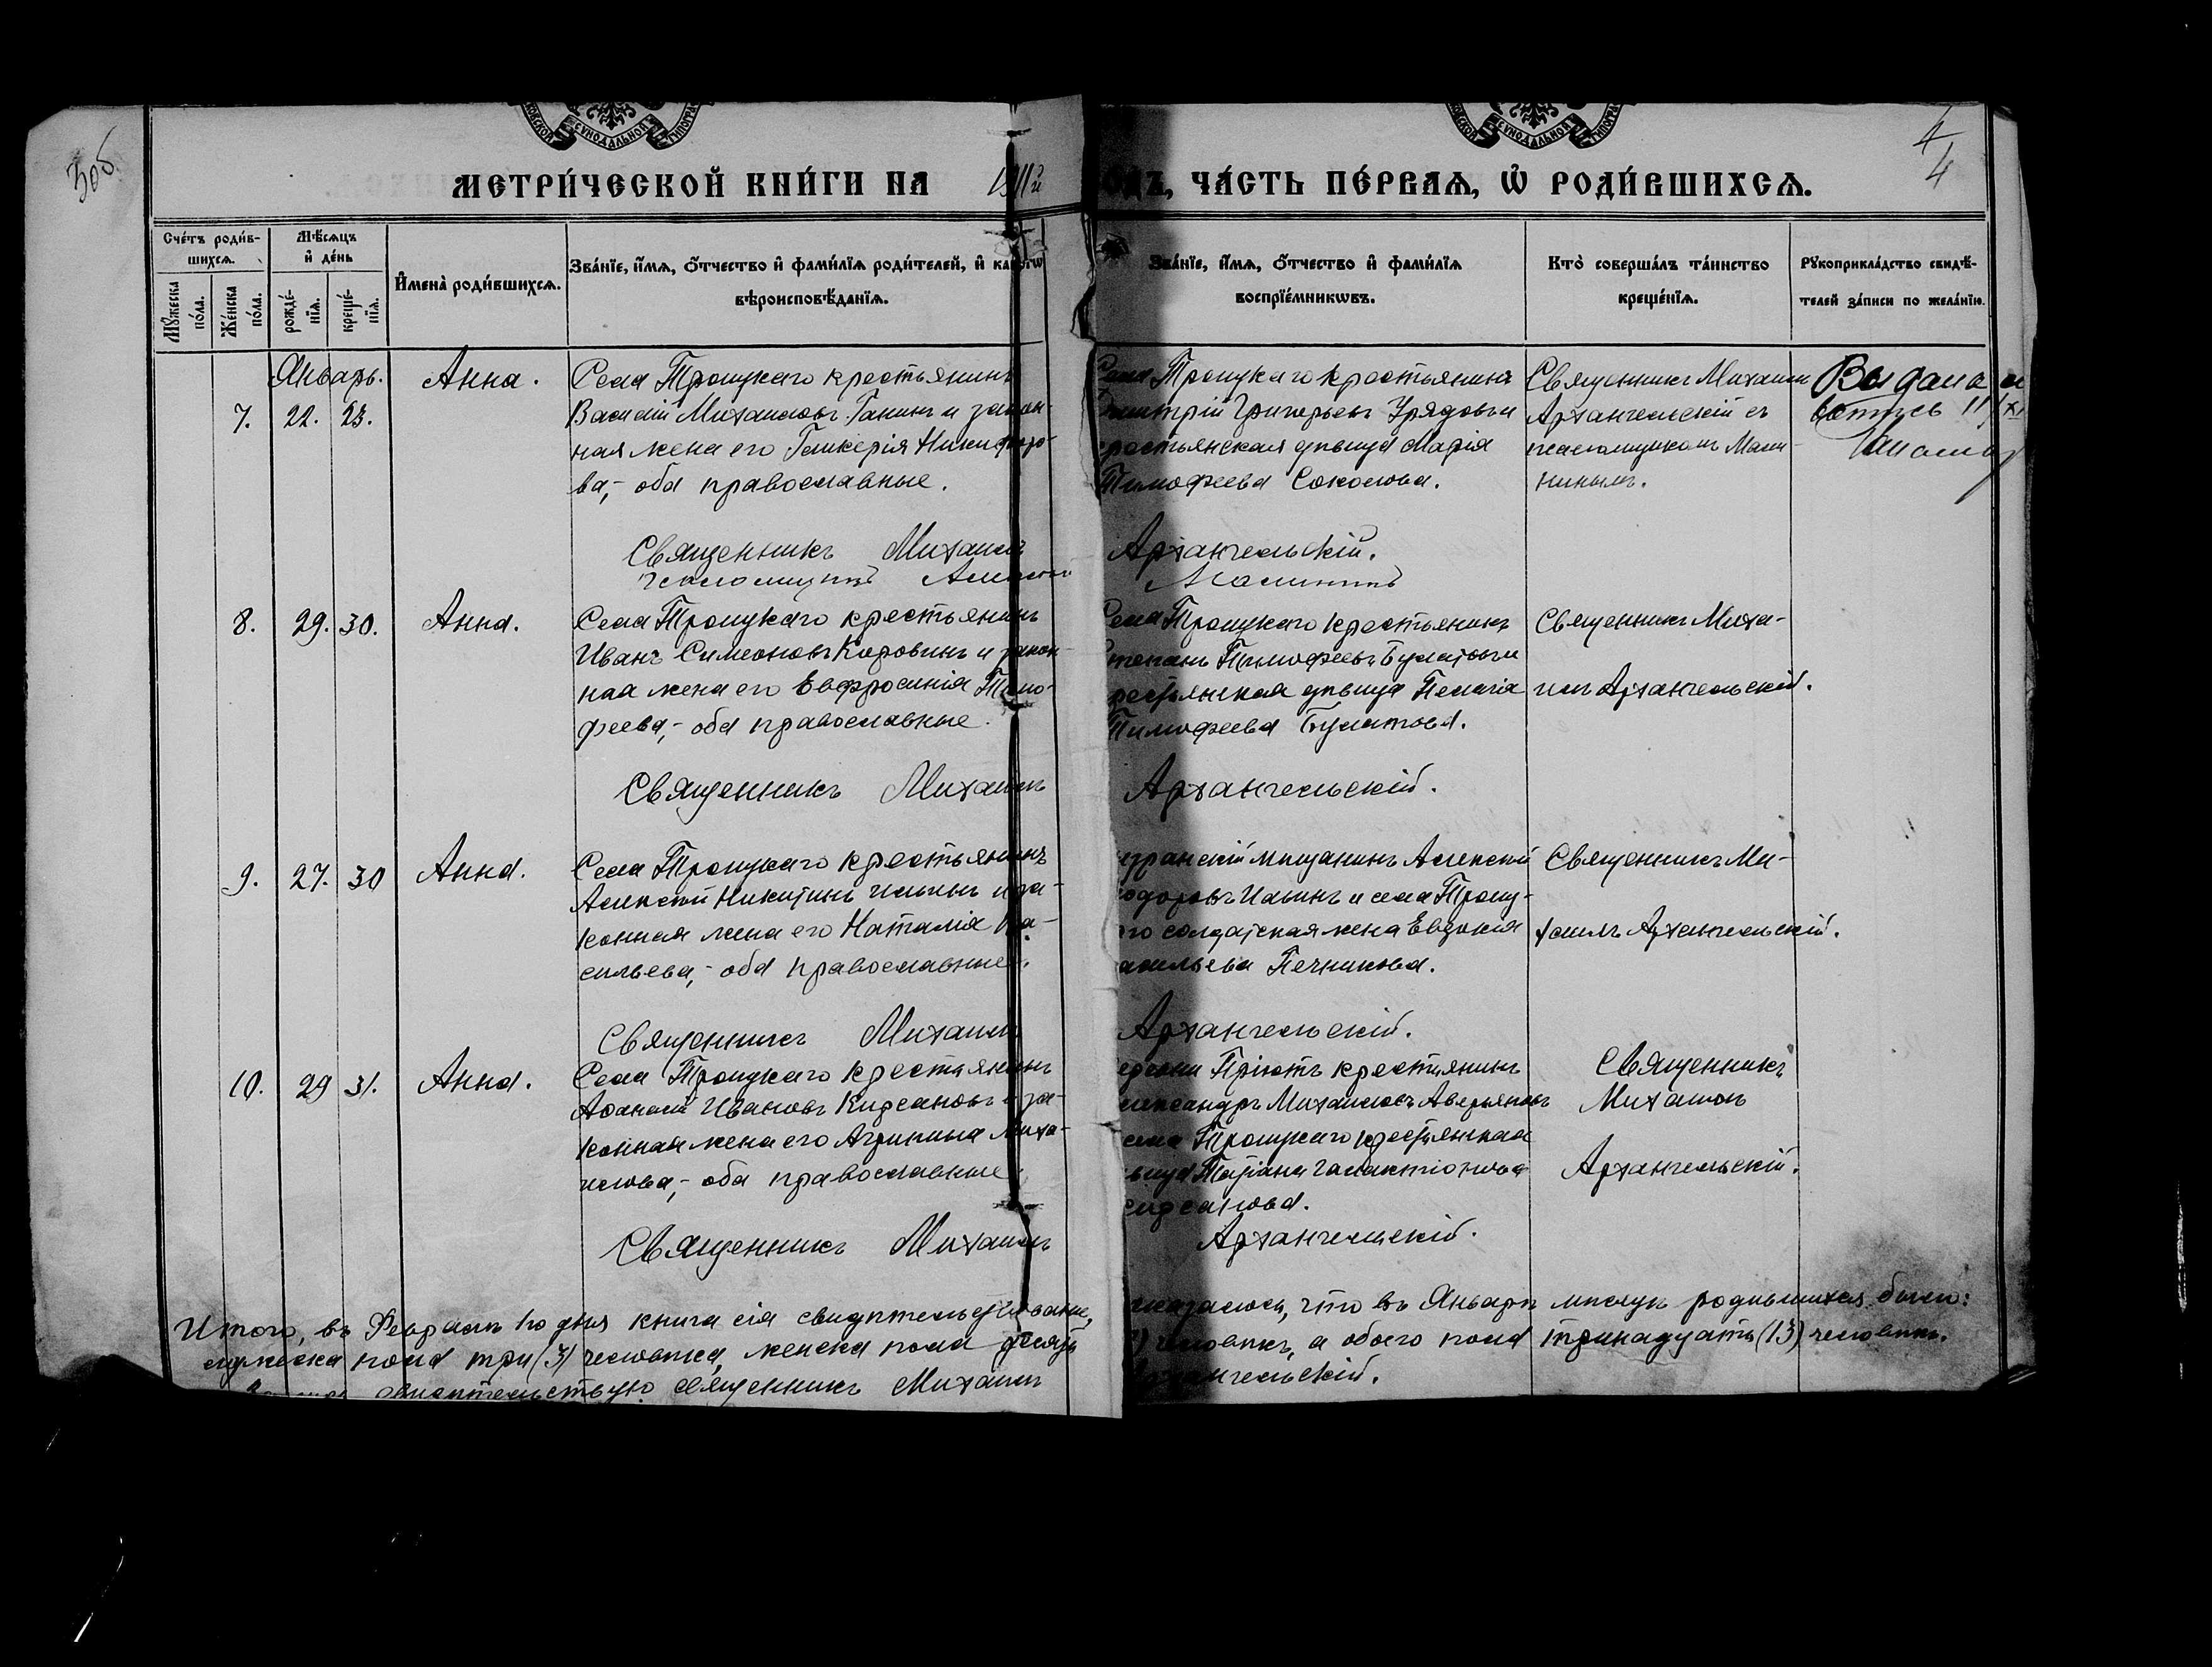 3 об.
4
4
СѴНОДАЛЬНОЙ
СѴНОДАЛЬНОЙ
МЕТРИ́ЧЕСКОЙ КНИ́ГИ НА 1911й ОДЪ, ЧА́СТЬ ПЕ́РВАЯ, Ѽ РОДИ́ВШИХСЯ.
Сче́тъ роди́в-
шихся.
Мꙋ́жеска по́ла.
Же́нска по́ла.
Мѣ́сяцъ и҆ де́нь
рожде́-
нїя.
креще́-
нїя.
И҆мена̀ роди́вшихся.
Зва́нїе, и҆́мя, ѻ҆́тчество и҆ фами́лїя роди́телей, и҆
вѣроисповѣ́данїя.
Зва́нїе, и҆́мя, ѻ҆́тчество и҆ фами́лїя
воспрїе́мникѡвъ.
Кто̀ соверша́лъ та́инство
креще́нїя.
Рꙋкоприкла́дство свидѣ́-
телей за́писи по жела́нїю.
Январь.
7. 22. 23.
Анна.
Села Троицкаго крестьянинъ
Василій Михаиловъ Ганинъ и закон-
ная жена его Гликерія Никифоро-
ва,- оба православные.
Села Троицкаго крестьянинъ
Димитрій Григорьевъ Урядовъ и
крестьянская дѣвица Марія
Тимофеева Соколова.
Священникъ Михаилъ
Архангельскій съ
псаломщикомъ Мали-
нинымъ.
Выдана
Священникъ Михаилъ Архангельскій.
Псаломщикъ Алексѣй Малининъ
8. 29. 30.
Анна.
Села Троицкаго крестьянинъ
Иванъ Симеоновъ Коровинъ и закон-
ная жена его Евфросинія Тимо-
феева,- оба православные.
Села Троицкаго крестьянинъ
Степанъ Тимофеевъ Булатовъ и
крестьянская дѣвица Пелагія
Тимофеева Булатова.
Священникъ Миха-
илъ Архангельскій.
Священникъ Михаилъ Архангельскій.
9. 27. 30
Анна.
Села Троицкаго крестьянинъ
Алексѣй Никитинъ Ильинъ и за-
конная жена его Наталія Ва-
сильева,- оба православные.
мѣщанинъ Алексѣй
одоровъ Ильинъ и села Троиц-
го солдатская жена Евдокія
асильева Печникова.
Священникъ Ми-
хаилъ Архангельскій.
Священникъ Михаилъ Архангельскій.
10. 29 31.
Анна.
Села Троицкаго крестьянинъ
Афанасій Ивановъ Кирсановъ и за-
конная жена его Агрипина Миха-
илова,- оба православные.
Пріютъ крестьянинъ
лександръ Михаиловъ Аверьяновъ
села Троицкаго крестьянская
вица Татіана Галактіонова
ирсанова.
Священникъ
Михаилъ
Архангельскій.
Священникъ Михаилъ Архангельскій.
Итого, въ Февралѣ 1го дня книга сія свидѣтельствована, оказалось, что въ Январѣ мѣсяцѣ родившихся было:
мужеска пола три (3) человѣка, женска пола десять человѣкъ, а обоего пола тринадцать (13) человѣкъ.
свидѣтельствую священникъ Михаилъ Архангельскій.